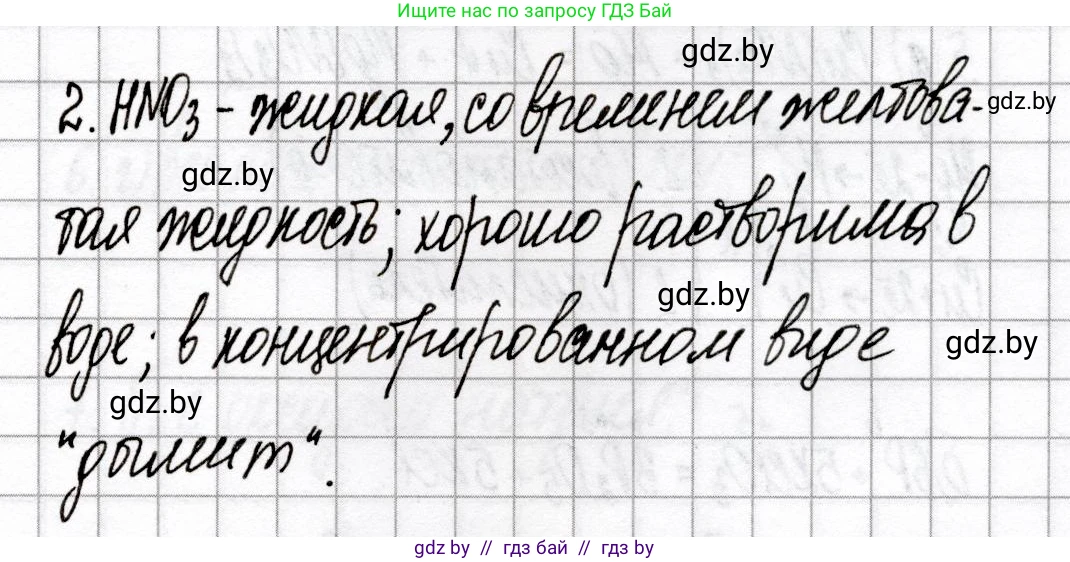 Ищите нас по запросу ГДЗ Бай
gdz.by
2. HNO3 - жидкая, со временем желтова-
gdz.by
gdz.by
тая жидкость; хорошо растворима в
gdz.by
воде; в концентрированном виде
gdz.by
gdz.by
"дымит".
gdz.by // гдз бай // гдз by